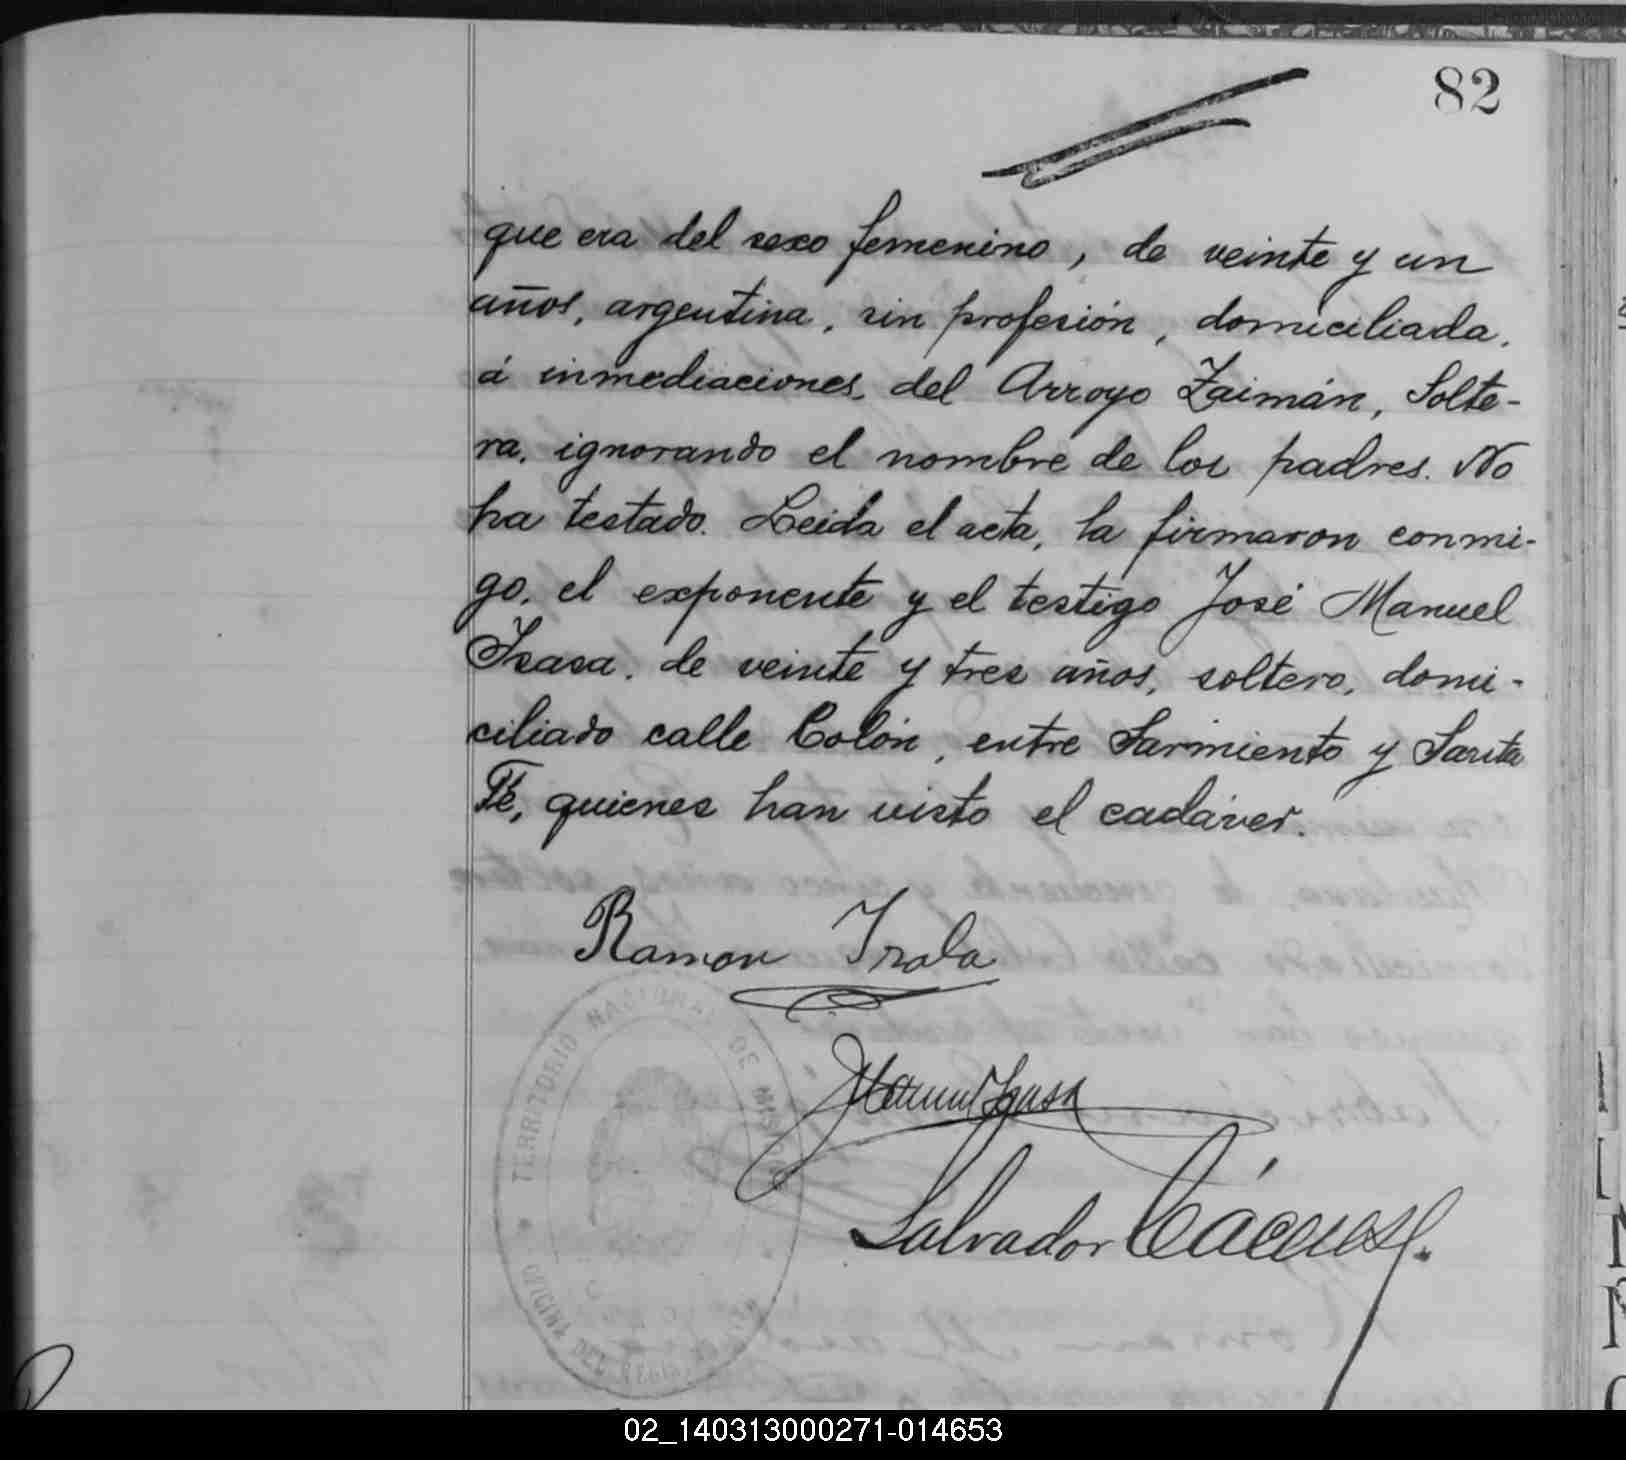 82
que era del sexo femenino, de veinte y un
años, argentina, sin profesión, domiciliada,
á inmediaciones, del Arroyo Zaimán, Solte-
ra, ignorando el nombre de los padres. No
ha testado. Leida el acta, la firmaron conmi-
go, el exponente y el testigo José Manuel
Isasa, de veinte y tres años, soltero, domi-
ciliado calle Colón, entre Sarmiento y Santa
Fé, quienes han visto el cadáver.
Ramon Irala
TERRITORIO NACIONAL DE MISIONES
Manuel Isasa
Salvador
OFICINA DEL
02_140313000271-014653